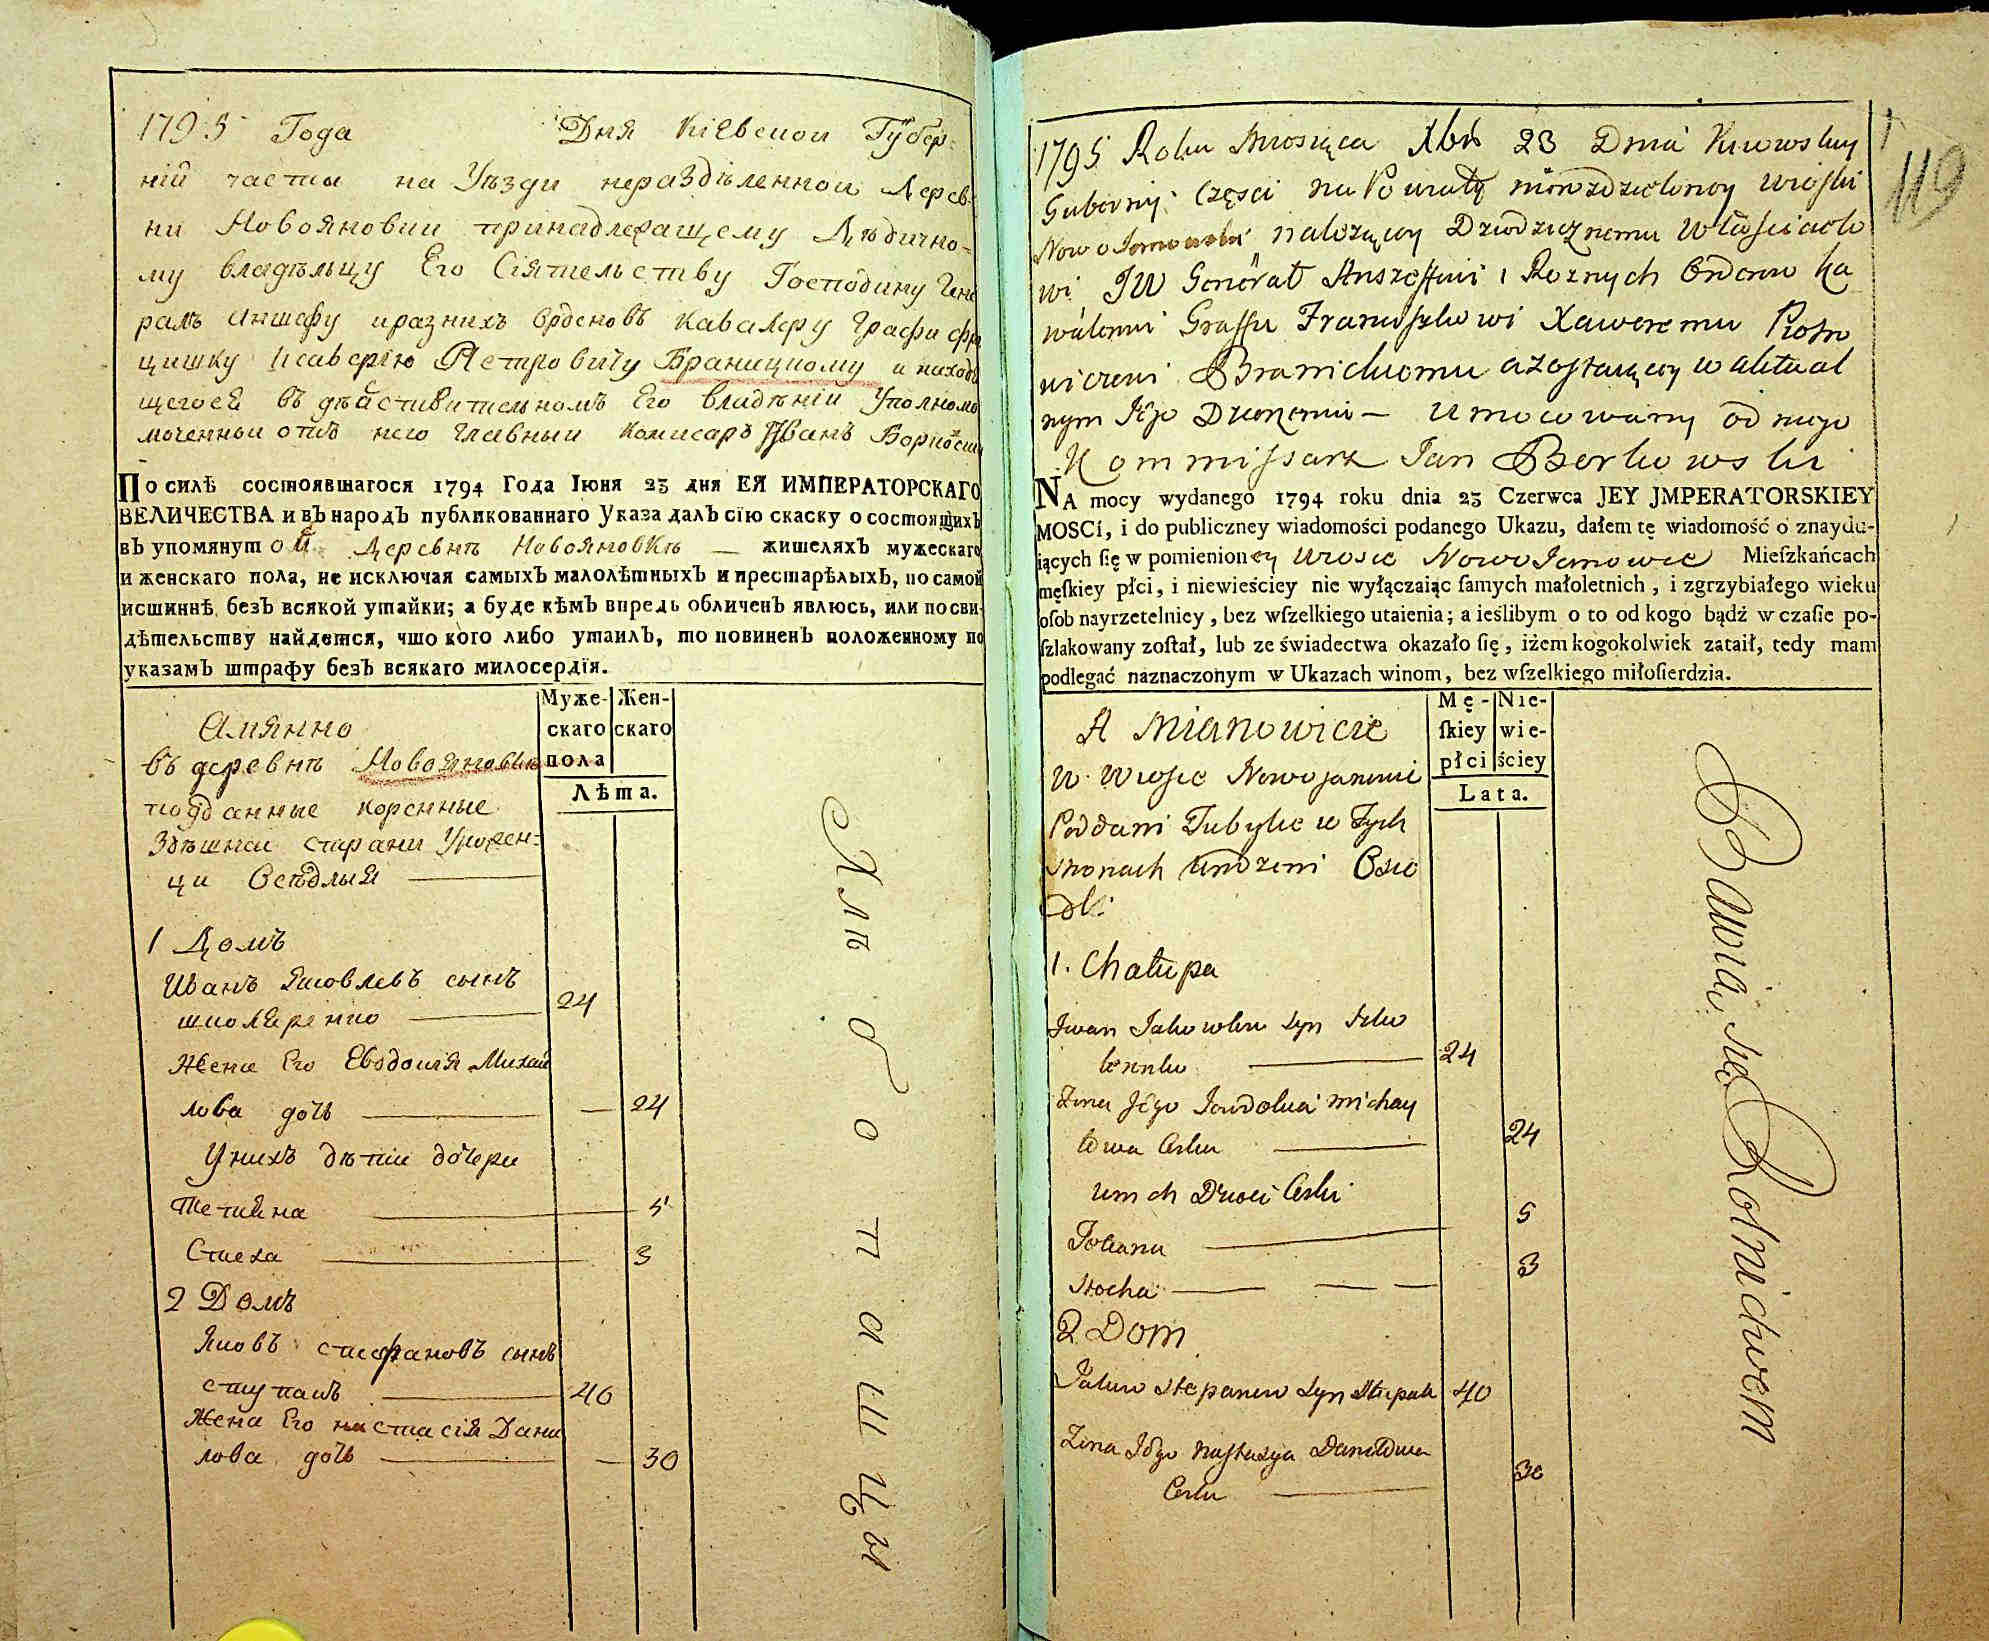 1795 Года Дня Кіевской Губер-
ній части на Уѣзди нераздѣленной Дерев-
ни Новояновки принадлежащему Дѣдично-
му владѣльцу Его Сіятельству Господину Гене
ралъ аншефу и разнихъ Орденовъ Кавалеру Графи Фра
цишку Ксаверію Петровичу Браницкому и наход
щегося въ дѣйствительномъ Его владѣніи Уполномо
моченный отъ него Главный Комисаръ Иванъ
ПО силѣ состоявшагося 1794 Года Іюня 23 дня ЕЯ ИМПЕРАТОРСКАГО
ВЕЛИЧЕСТВА и въ народъ публикованнаго Указа далъ сію скаску о состоящихъ
въ упомянутой Деревнѣ Новояновкѣ — жителяхъ мужескаго
и женскаго пола, не исключая самыхъ малолѣтныхъ и престарѣлыхъ, по самой
истиннѣ безъ всякой утайки; а буде кѣмъ впредь обличенъ явлюсь, или по сви-
дѣтельству найдется, что кого либо утаилъ, то повиненъ положенному по
указамъ штрафу безъ всякаго милосердія.
Муже- Жен-
скаго скаго
пола
Лѣта.
Амянно
въ деревнѣ Новояновкѣ
подданные коренные
Здѣшнеи старани Урожен-
ци Осѣдлыя
1 Домъ
Иванъ Яковлевъ сынъ
шкляренко 24
Жена Его Евдокия Михай
лова дочь — 24
У нихъ дѣтии дочери
Тетияна 5
Стеха 3
2 Домъ
Яковъ стефановъ сынъ
ступакъ 40
Жена Его настасія Дани
лова дочь — 30
Хлѣбопашцы
119
1795 Roku Miesiąca Xbr 23 Dnia Kiiowskiey
Gubernij Części na Powiaty nierozdzieloney wioski
Nowo Janowki należącey Dziedzicznemu Właścicielo
wi JW Generał Anszeffowi i Roznych Orderow Ka
walerowi Graffu Franciszkowi Xaweremu Piotro
wiczowi Branickiemu a zostaiącey w aktual
nym Jego Dzierżeniu — Umocowany od niego
Kommissarz Jan Borkowski
NA mocy wydanego 1794 roku dnia 23 Czerwca JEY JMPERATORSKIEY
MOSCi, i do publiczney wiadomości podanego Ukazu, dałem tę wiadomość o znaydu-
iących ſię w pomienioney Wiosce Nowo Janowce Mieſzkańcach
męſkiey płci, i niewieściey nie wyłączaiąc ſamych małoletnich, i zgrzybiałego wieku
oſob nayrzetelniey, bez wſzelkiego utaienia; a ieślibym o to od kogo bądź w czaſie po-
ſzlakowany zoſtał, lub ze świadectwa okazało ſię, iżem kogokolwiek zataił, tedy mam
podlegać naznaczonym w Ukazach winom, bez wſzelkiego miłoſierdzia.
Mę- Nie-
ſkiey wie-
płci ściey
Lata.
A Mianowicie
w Wiosce Nowojanowce
Poddani Tubylce w Tych
Stronach Urodzeni Osie
dli
1. Chałupa
Iwan Jakowlew Syn Szkla
renko 24
Żona Jego Jewdokia Michay
łowa Corka 24
u nich Dzieci Corki
Tetiana 5
Stecha 3
2 Dom
Jakow Stepanow Syn Stupak 40
Żona Jego Nastazya Daniłowa
Corka 30
Bawią się Rolnictwem